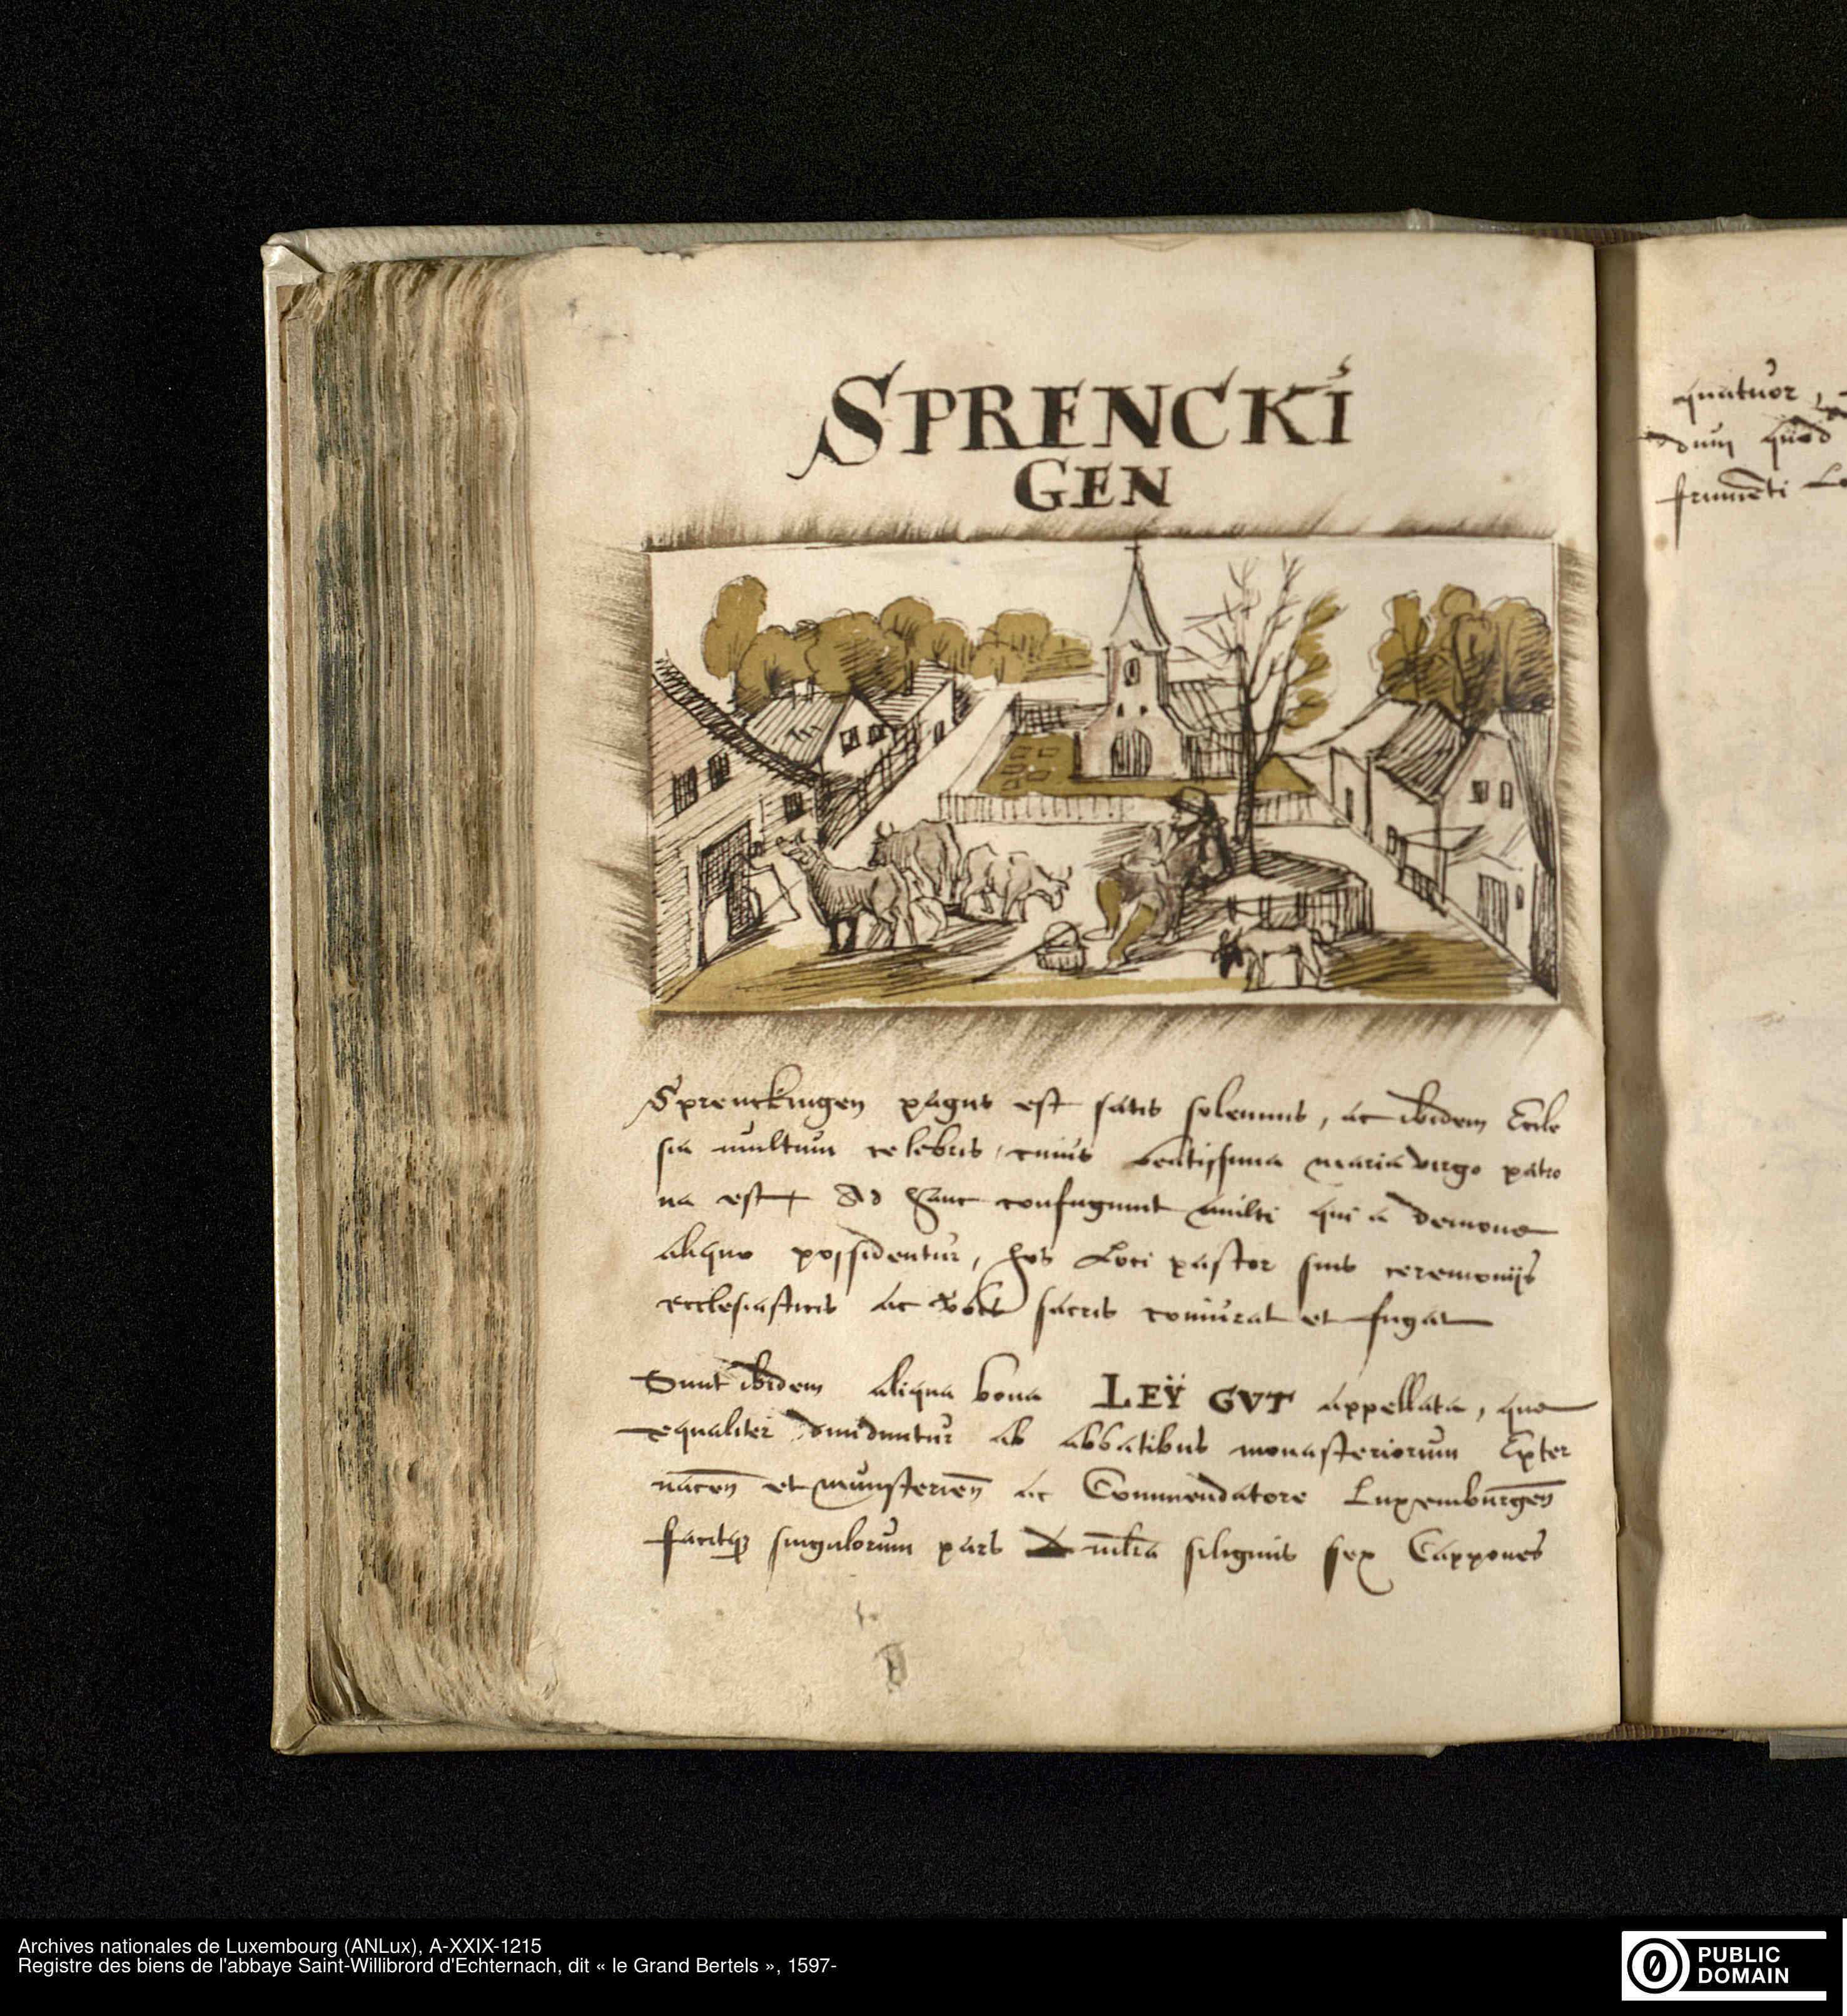 SPRENCKI
GEN
Sprenckingen pagus est satis solemnis, ac ibidem Eccle
sia multum celebris, cuius beatissima maria virgo patro
na est Ad hanc confugiunt multi qui a demone
aliquo possidentur, hos Loci pastor suis ceremoniis
ecclesiasticis ac sacris coniurat et fugat
Sunt ibidem aliqua bona LEŸ GVT appellata, que
equaliter diuiduntur ab abbatibus monasteriorum Epter
nacen̄ et munsterien̄ ac Commendatore Luxemburgen̄
facitqȝ singulorum pars siliginis sex Cappones
quatuor,
dum quod
frumēti
Archives nationales de Luxembourg (ANLux), A-XXIX-1215
Registre des biens de l'abbaye Saint-Willibrord d'Echternach, dit « le Grand Bertels », 1597-
PUBLIC
DOMAIN